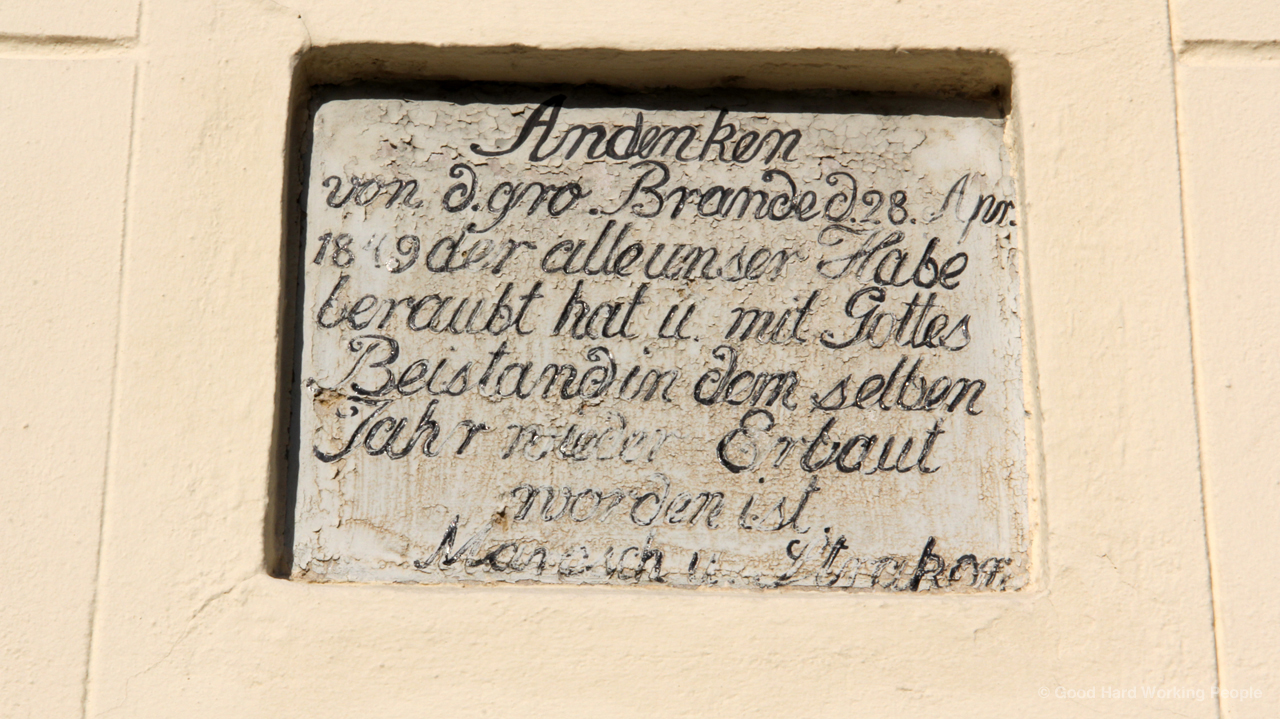 Andenken
von d. gro. Brande d. 28. Apr.
18 9 der alle unser Habe
beraubt hat u. mit Gottes
Beistand in dem selben
Jahr wieder Erbaut
worden ist.
u.
© Good Hard Working People